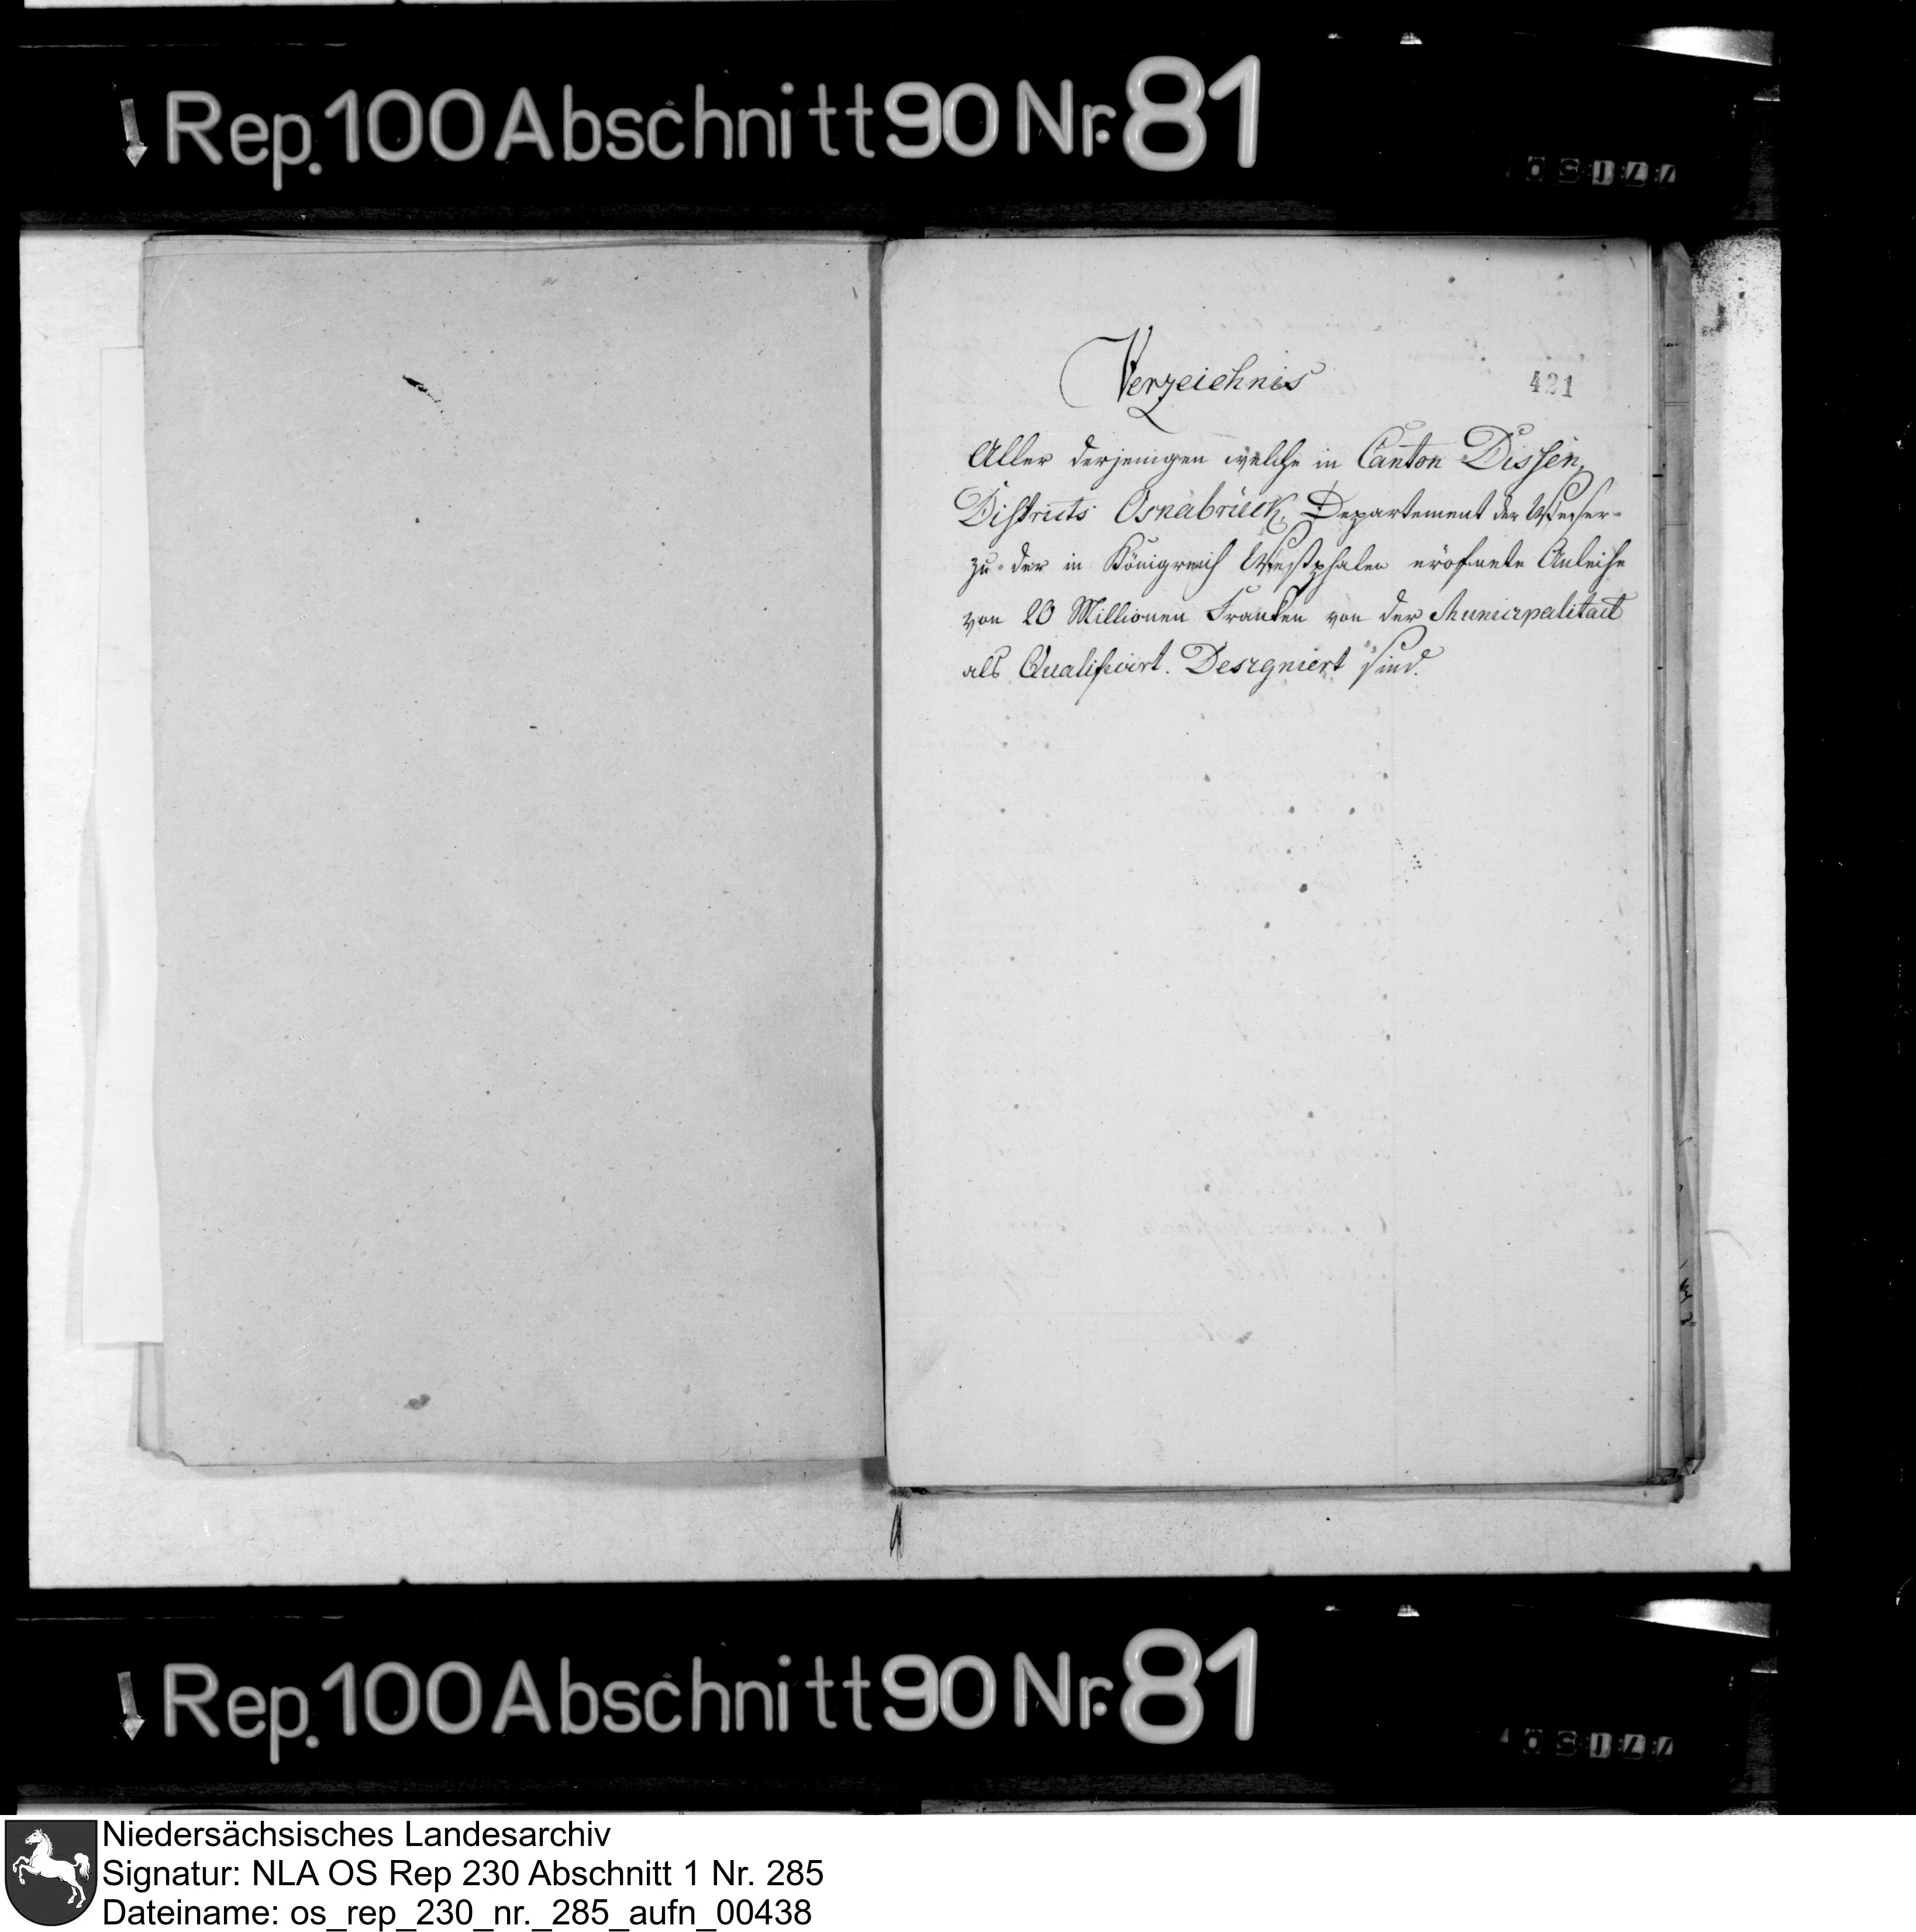 Rep. 100 Abschnitt 90 Nr. 81
Verzeichnis
421
Aller derjenigen welche in Canton Dissen,
Districts Osnabrück, Departement der Weser
zu der in Königreich Westphalen eröfnete Anleihe
von 20 Millionen Franken von der Municipalitaet
als Qualificirt. Designiert sind.
Rep. 100 Abschnitt 90 Nr. 81
Niedersächsisches Landesarchiv
Signatur: NLA OS Rep 230 Abschnitt 1 Nr. 285
Dateiname: os_rep_230_nr._285_aufn_00438